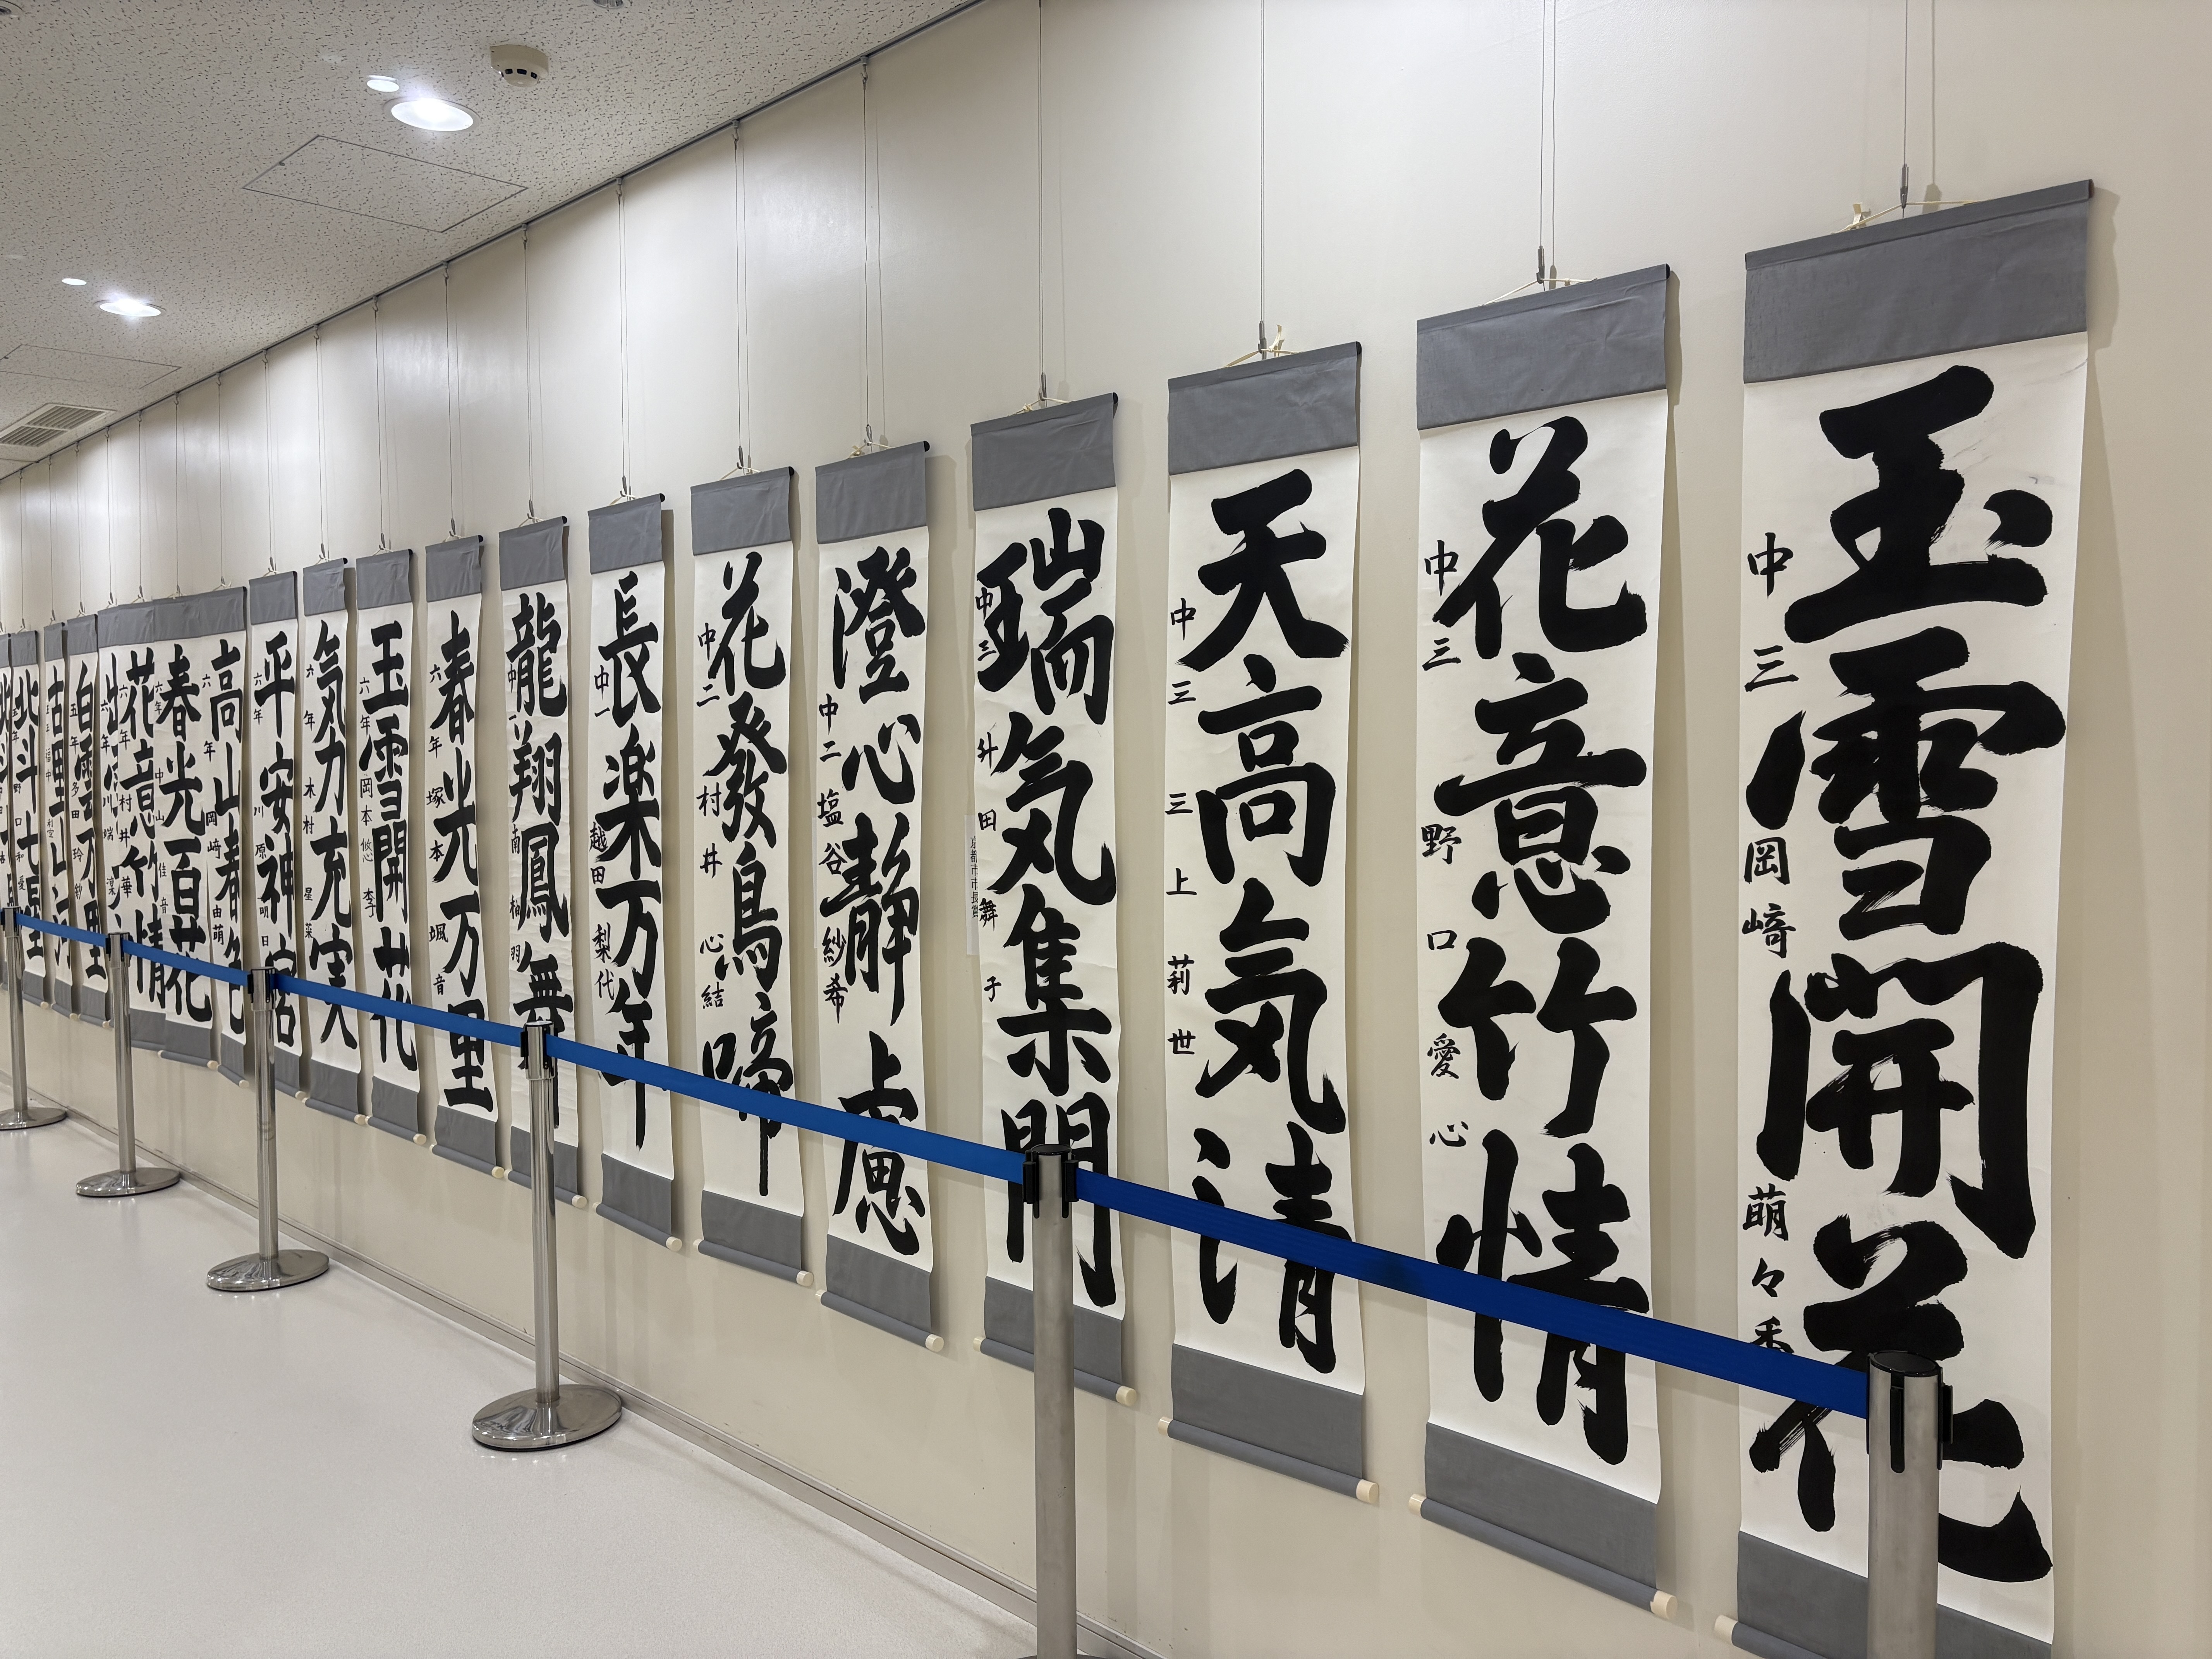 玉雪開花
中三 岡﨑 萌々香
花意竹情
中三 野口 愛心
天高気清
中三 三上 莉世
瑞気集門
中三 升田 舞子
京都市市長賞
澄心静慮
中二 塩谷 紗希
花發鳥啼
中二 村井 心結
長楽万年
中一 越田 梨代
龍翔鳳舞
春光万里
六年 塚本 颯音
玉雪開花
六年 岡本 悠李
気力充実
六年 木村 星菜
平安神宮
六年 川原 明日
高山春色
六年 岡﨑 由萌
春光百花
六年 中山 佳音
花意竹情
六年 村井 華
白雲万里
五年 多田 玲紗
北斗七星